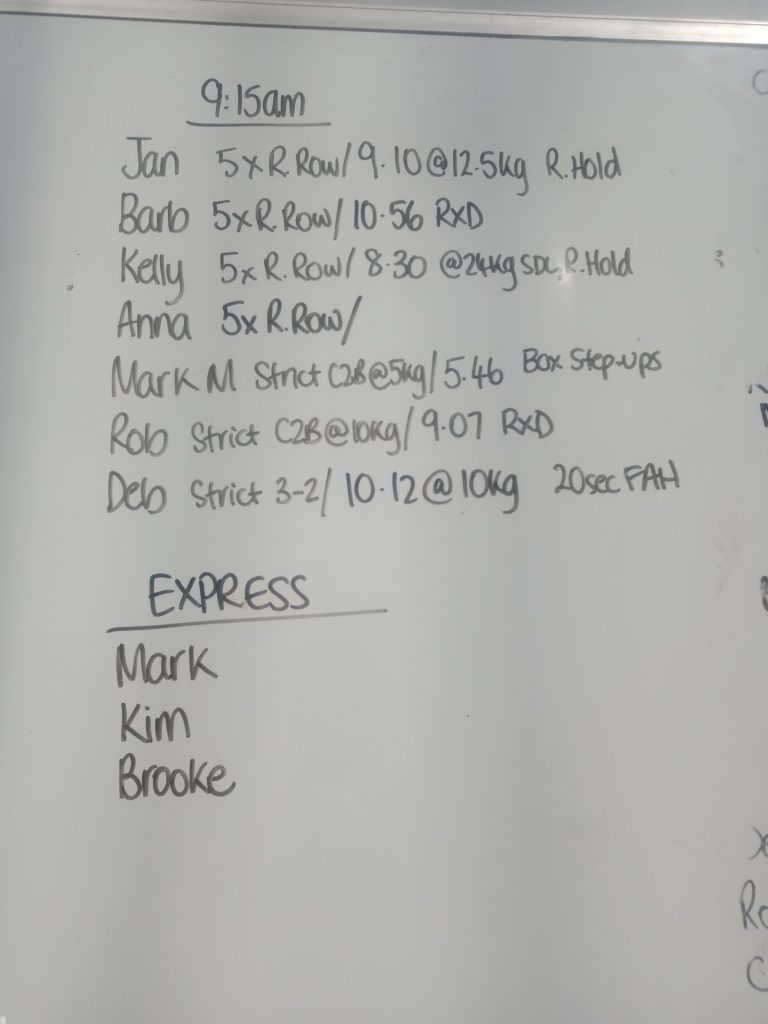 9:15am
Jan 5x R.Row/ 9.10 @12.5kg R.Hold
Barb 5x R.Row/ 10.56 RxD
Kelly 5x R.Row/ 8.30 @24kg SDL, R.Hold
Anna 5x R.Row/
Mark M Strict C2B@5kg/ 5.46 Box Step-ups
Rob Strict C2B@10kg/ 9.07 RxD
Deb Strict 3-2/ 10.12@10kg 20sec FAH
EXPRESS
Mark
Kim
Brooke